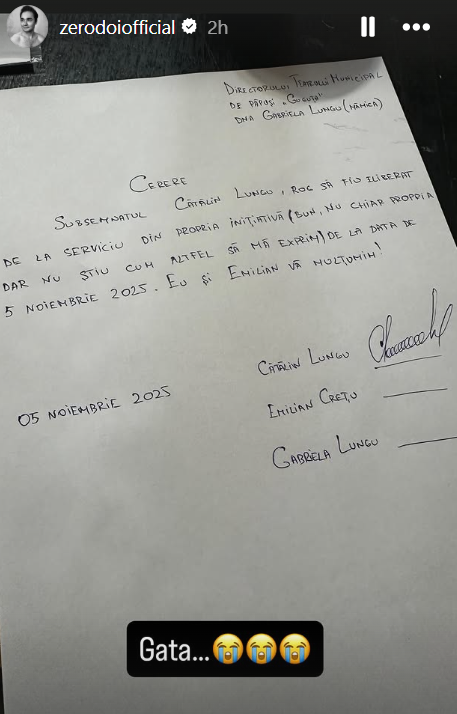 zerodoiofficial 2h
DIRECTORULUI TEATRULUI MUNICIPAL
DE PĂPUȘI „GUGUȚĂ”
DNA GABRIELA LUNGU (MĂMICA)
CERERE
SUBSEMNATUL CĂTĂLIN LUNGU, ROG SĂ FIU ELIBERAT
DE LA SERVICIU DIN PROPRIA INIȚIATIVĂ (BUN, NU CHIAR PROPRIA
DAR NU ȘTIU CUM ALTFEL SĂ MĂ EXPRIM) DE LA DATA DE
5 NOIEMBRIE 2025. EU ȘI EMILIAN VĂ MULȚUMIM!
CĂTĂLIN LUNGU
05 NOIEMBRIE 2025
EMILIAN CREȚU
GABRIELA LUNGU
Gata...😭😭😭